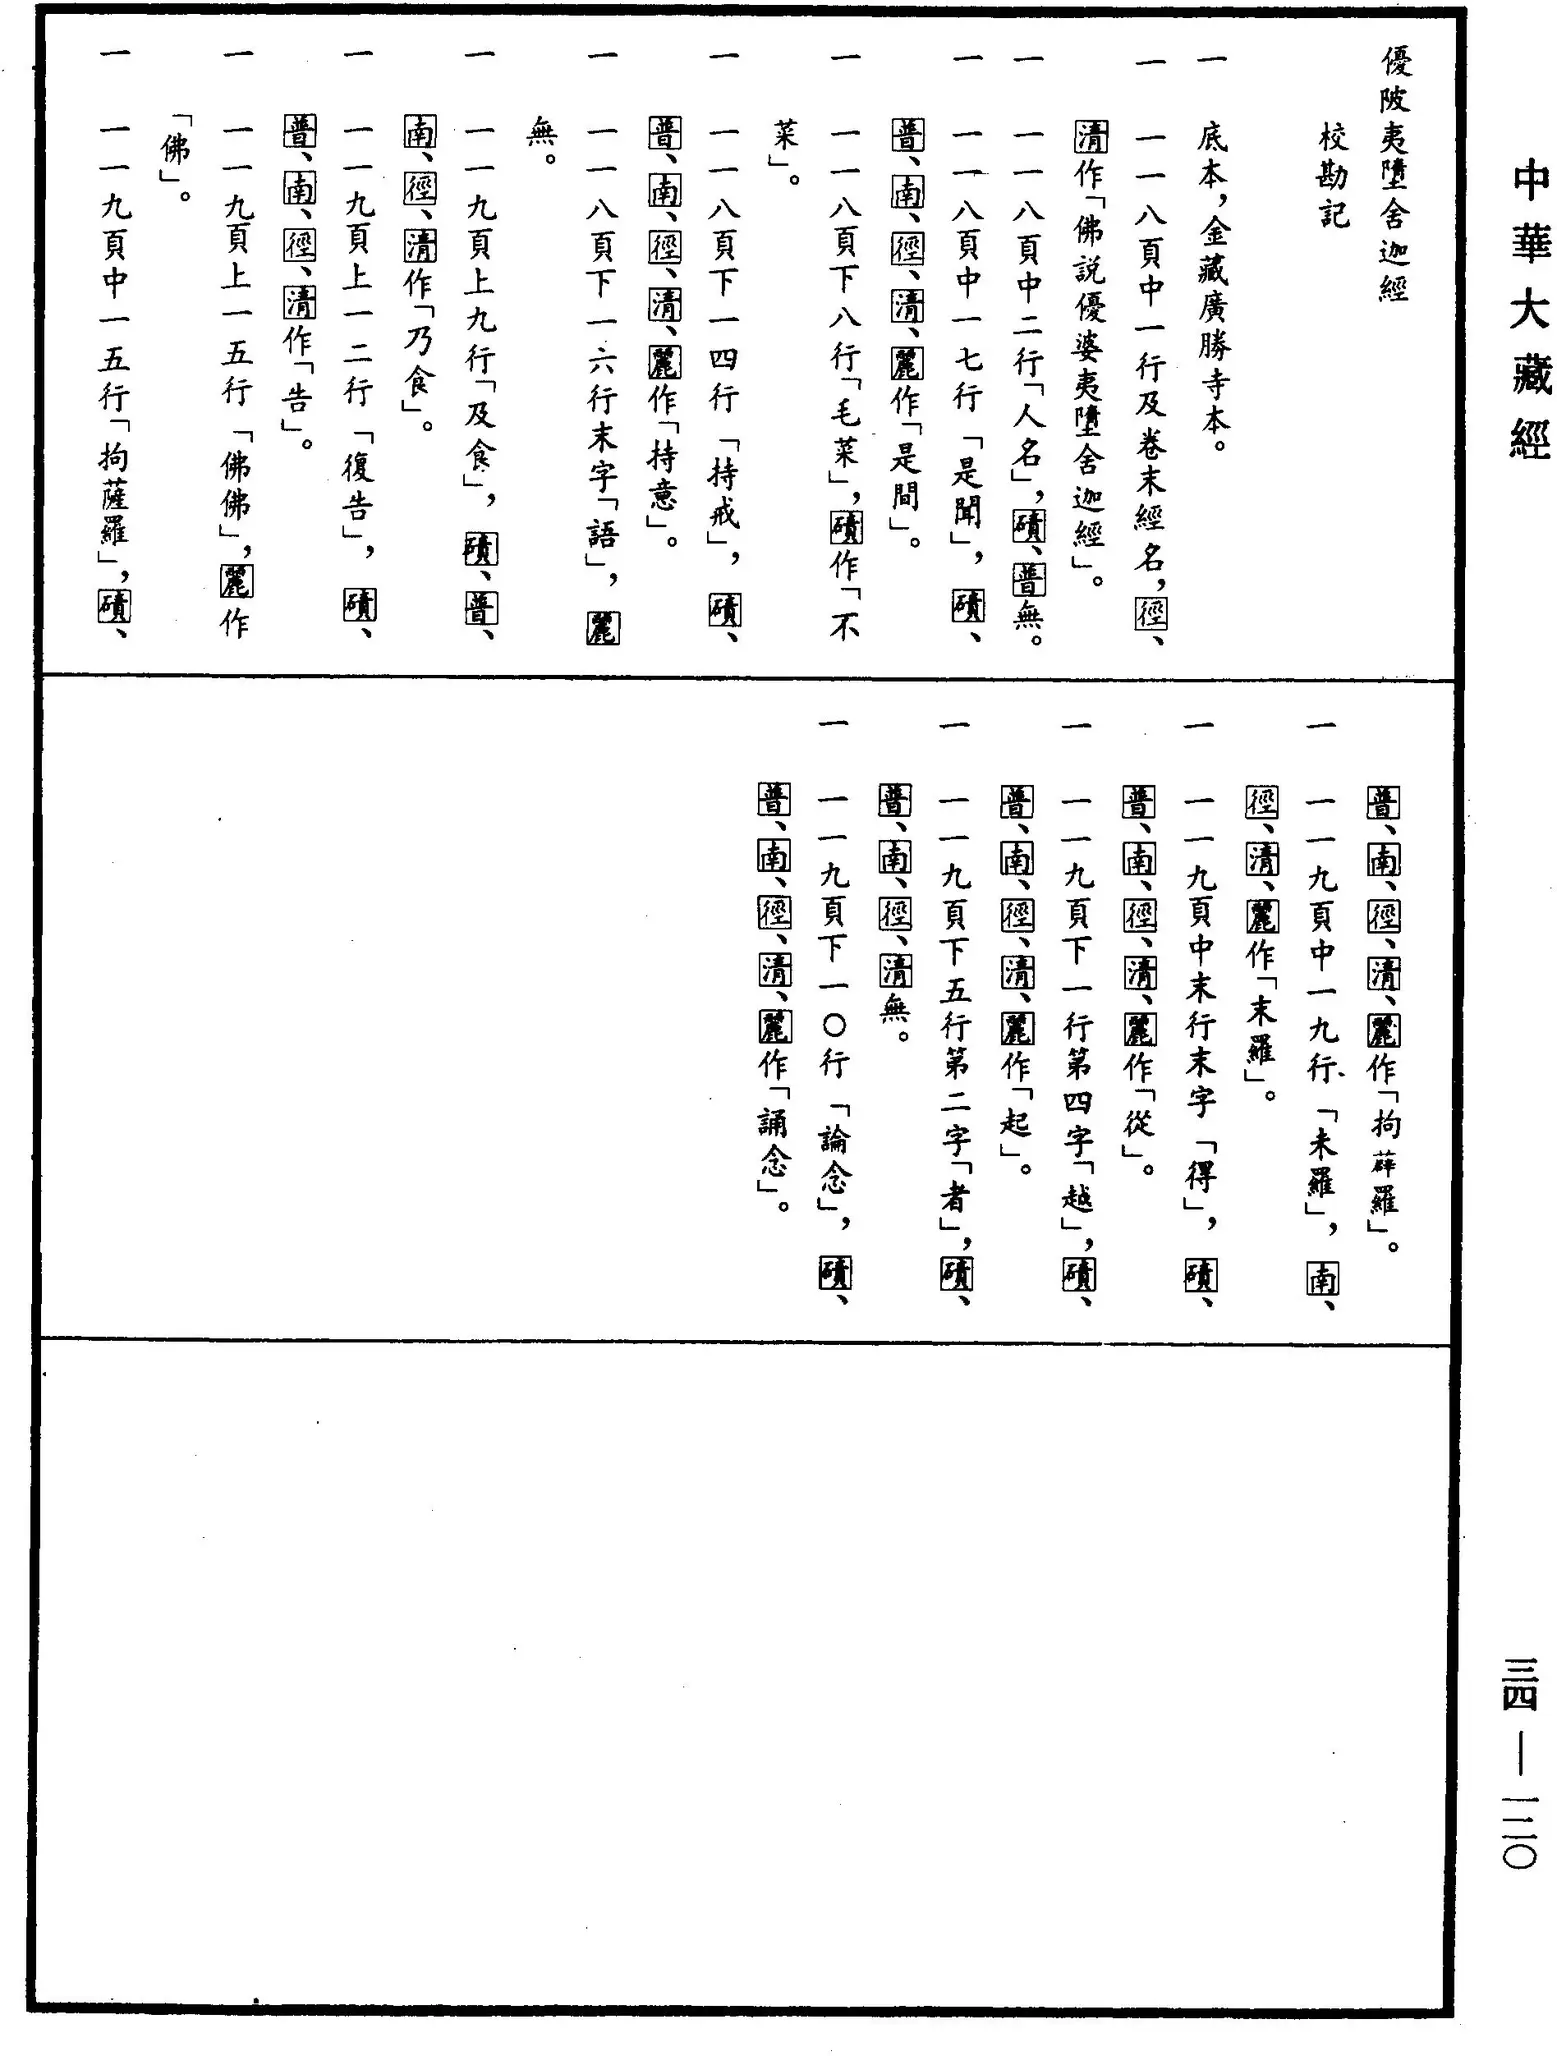 中華大藏經
優陂夷墮舍迦經
校勘記
一 底本，金藏廣勝寺本。
一 一一八頁中一行及卷末經名，徑、
清作「佛說優婆夷墮舍迦經」。
一 一一八頁中二行「人名」，磧、普無。
一 一一八頁中一七行「是聞」，磧、
普、南、徑、清、麗作「是間」。
一 一一八頁下八行「毛菜」，磧作「不
菜」。
一 一一八頁下一四行「持戒」，磧、
普、南、徑、清、麗作「持意」。
一 一一八頁下一六行末字「語」，麗
無。
一 一一九頁上九行「及食」，磧、普、
南、徑、清作「乃食」。
一 一一九頁上一二行「復告」，磧、
普、南、徑、清作「告」。
一 一一九頁上一五行「佛佛」，麗作
「佛」。
一 一一九頁中一五行「拘薩羅」，磧、
普、南、徑、清、麗作「拘薜羅」。
一 一一九頁中一九行「未羅」，南、
徑、清、麗作「末羅」。
一 一一九頁中末行末字「得」，磧、
普、南、徑、清、麗作「從」。
一 一一九頁下一行第四字「越」，磧、
普、南、徑、清、麗作「起」。
一 一一九頁下五行第二字「者」，磧、
普、南、徑、清無。
一 一一九頁下一〇行「論念」，磧、
普、南、徑、清、麗作「誦念」。
三四—一二〇